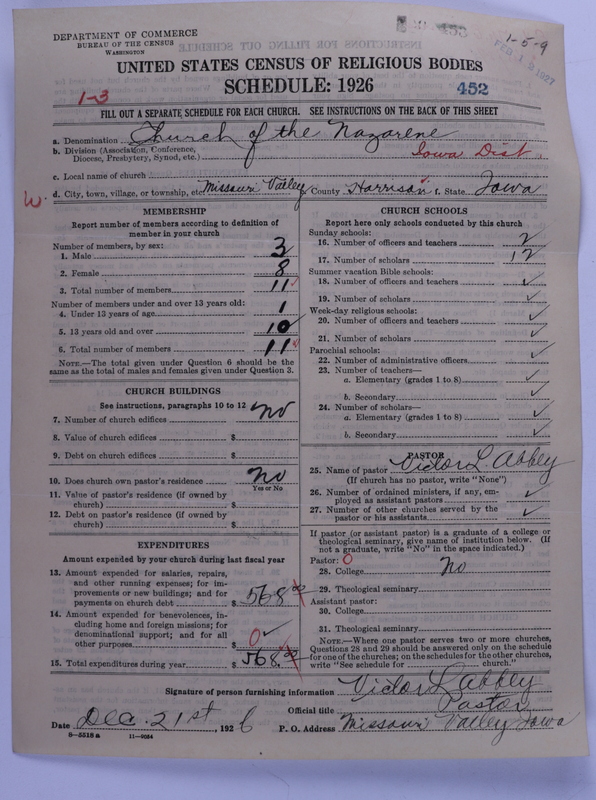 DEPARTMENT OF COMMERCE
BUREAU OF THE CENSUS
WASHINGTON
1-5-9
FEB 12 1927
UNITED STATES CENSUS OF RELIGIOUS BODIES
SCHEDULE: 1926
452
1-3
FILL OUT A SEPARATE SCHEDULE FOR EACH CHURCH. SEE INSTRUCTIONS ON THE BACK OF THIS SHEET
a. Denomination Church of the Nazarene
b. Division (Association, Conference,
Diocese, Presbytery, Synod, etc.) Iowa Dist.
c. Local name of church
W. d. City, town, village, or township, etc. Missouri Valley e. County Harrison f. State Iowa
MEMBERSHIP
Report number of members according to definition of
member in your church
Number of members, by sex:
1. Male 3
2. Female 8
3. Total number of members 11 ✓
Number of members under and over 13 years old:
4. Under 13 years of age 1
5. 13 years old and over 10
6. Total number of members 11 ✓
NOTE.—The total given under Question 6 should be the
same as the total of males and females given under Question 3.
CHURCH BUILDINGS
See instructions, paragraphs 10 to 12
7. Number of church edifices no
8. Value of church edifices $
9. Debt on church edifices $
10. Does church own pastor's residence? No
Yes or No
11. Value of pastor's residence (if owned by
church) $
12. Debt on pastor's residence (if owned by
church) $
EXPENDITURES
Amount expended by your church during last fiscal year
13. Amount expended for salaries, repairs,
and other running expenses; for im-
provements or new buildings; and for
payments on church debt $ 568.00
14. Amount expended for benevolences, in-
cluding home and foreign missions; for
denominational support; and for all
other purposes $ 0 ✓
15. Total expenditures during year $ 568.00
CHURCH SCHOOLS
Report here only schools conducted by this church
Sunday schools:
16. Number of officers and teachers 2
17. Number of scholars 12
Summer vacation Bible schools:
18. Number of officers and teachers ✓
19. Number of scholars ✓
Week-day religious schools:
20. Number of officers and teachers ✓
21. Number of scholars ✓
Parochial schools:
22. Number of administrative officers ✓
23. Number of teachers—
a. Elementary (grades 1 to 8) ✓
b. Secondary ✓
24. Number of scholars—
a. Elementary (grades 1 to 8) ✓
b. Secondary ✓
PASTOR
25. Name of pastor Victor L. Abbey
(If church has no pastor, write "None")
26. Number of ordained ministers, if any, em-
ployed as assistant pastors ✓
27. Number of other churches served by the
pastor or his assistants ✓
If pastor (or assistant pastor) is a graduate of a college or
theological seminary, give name of institution below. (If
not a graduate, write "No" in the space indicated.)
Pastor: 0
28. College No
29. Theological seminary
Assistant pastor:
30. College
31. Theological seminary
NOTE.—Where one pastor serves two or more churches,
Questions 28 and 29 should be answered only on the schedule
for one of the churches; on the schedules for the other churches,
write "See schedule for church."
Signature of person furnishing information Victor L Abbey
Official title Pastor
Date Dec. 21st, 1926 P. O. Address Missouri Valley Iowa
8-5518 a 11-9024